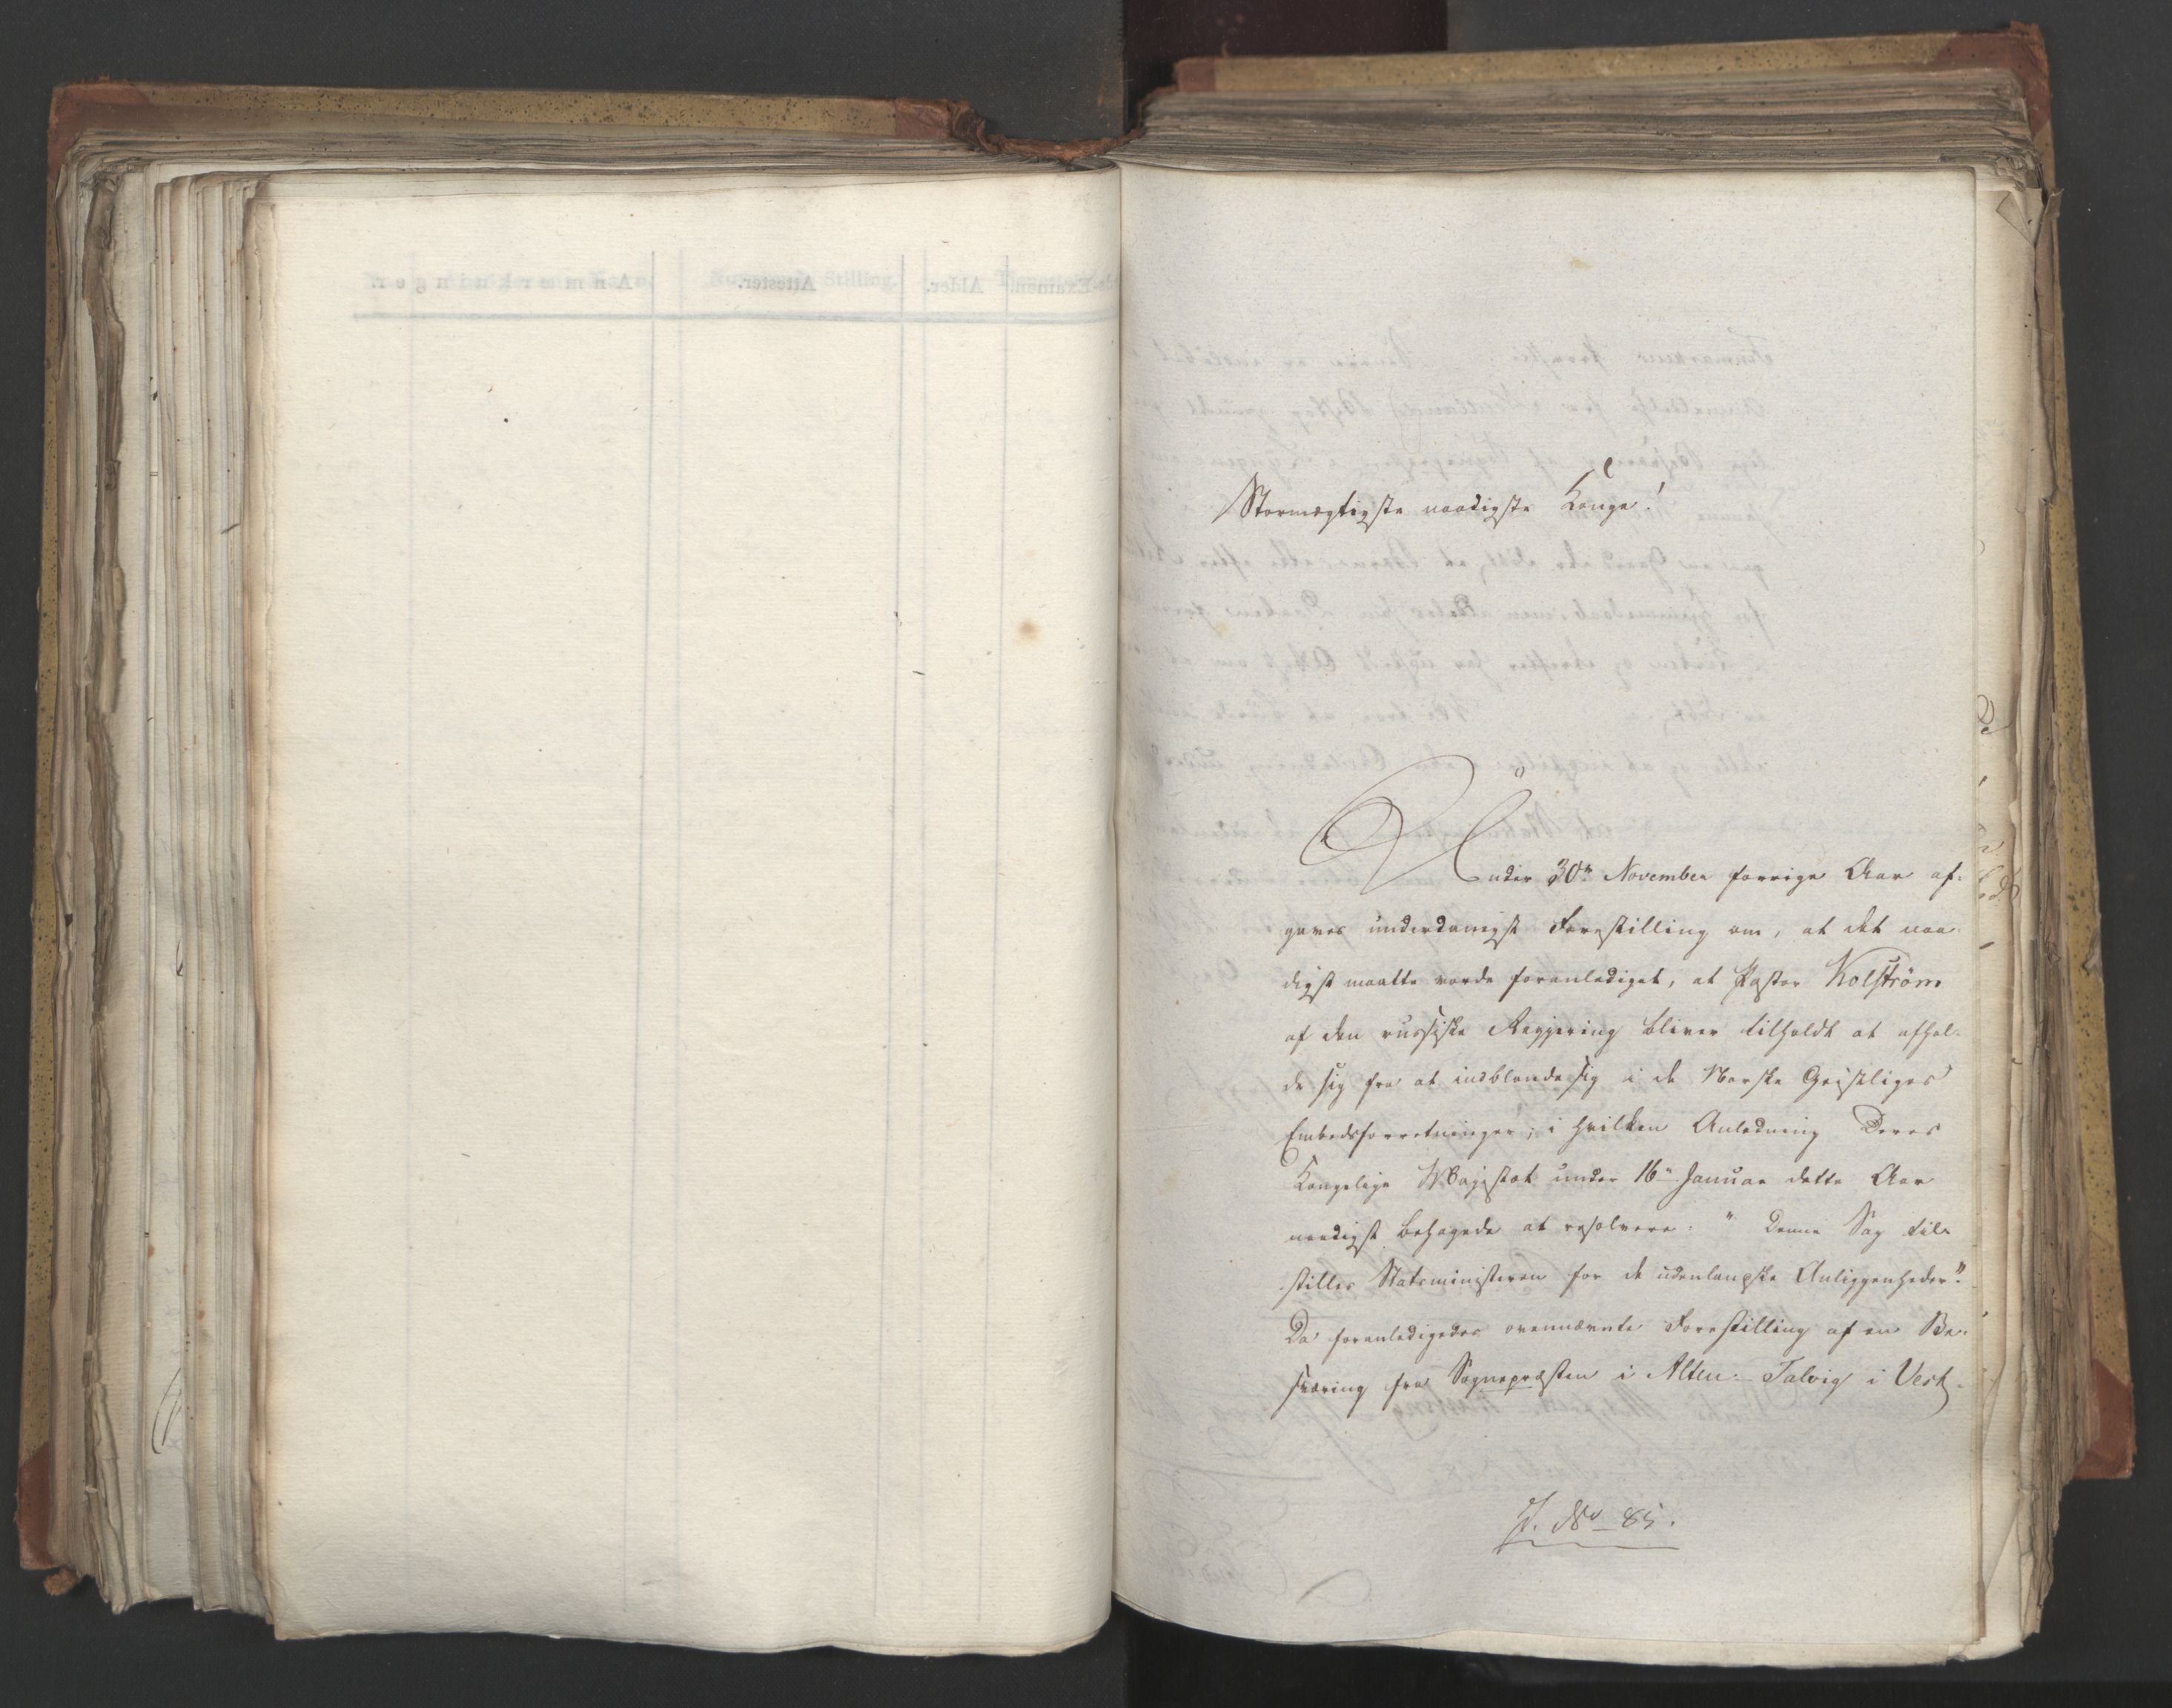 Stormægtigste naadigste Konge!
Under 30te November forrige Aar af-
gaves underdanigst Forestilling om, at det naa-
digst maatte vorde foranlediget, at Pastor Kolström
af den russiske Regjering bliver tilholdt at afhol-
de sig fra at indblande sig i de Norske Geistliges
Embedsforretninger; i hvilken Anledning Deres
Kongelige Majestæt under 16de Januar dette Aar
naadigst behagede at resolvere: "Denne Sag til-
stilles Statsministeren for de udenlandske Anliggenheder".
Da foranledigedes ovennævnte Forestilling af en Be-
sværing fra Sognepræsten i Alten-Talvig i Vest-
J. No 85.